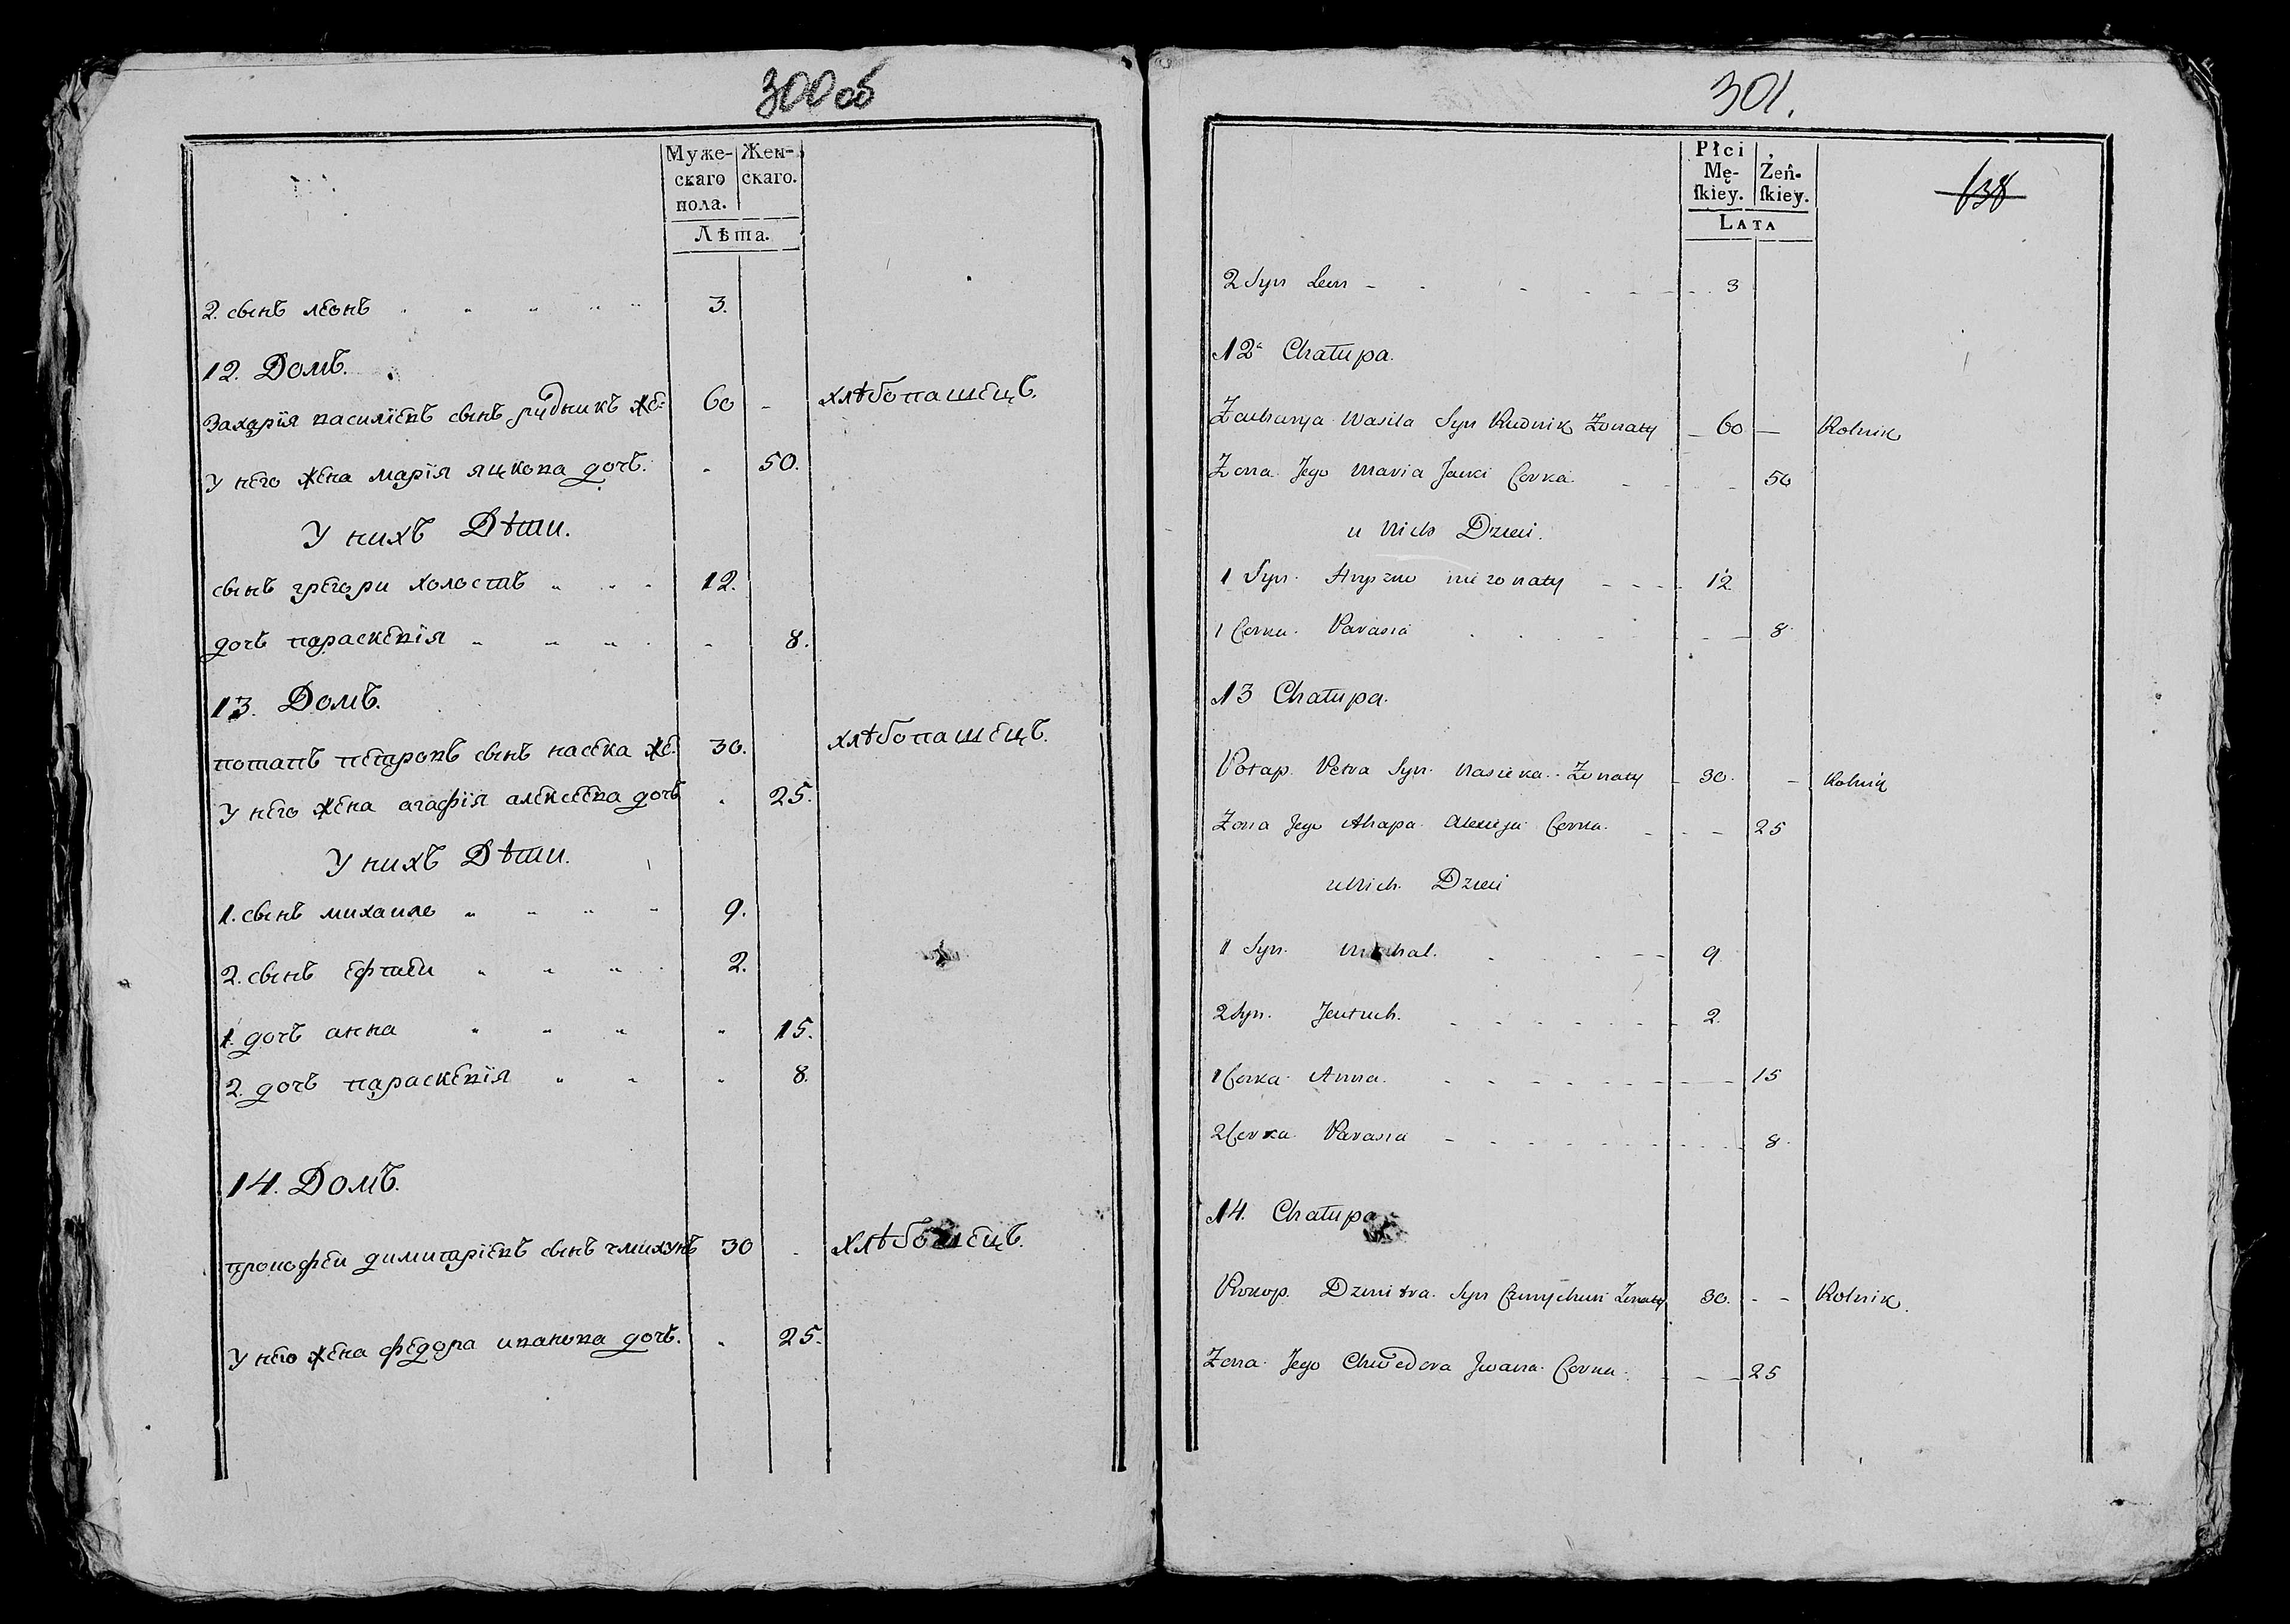 300об
Муже-
скаго
пола.
Жен-
скаго.
Лѣта.
2. сынъ леонъ 3.
12. Домъ.
Захарія василіевъ сынъ рудникъ же: 60 - хлѣбопашецъ.
У него жена марія яцкова дочъ. 50.
У нихъ Дѣти.
сынъ грегори холостъ 12.
дочъ параскевія 8.
13. Домъ.
потапъ петровъ сынъ насека же: 30. хлѣбопашецъ.
У него жена агафія алексеева дочъ 25.
У нихъ Дѣти.
1. сынъ михаилъ 9.
2. сынъ ефтеи 2.
1. дочъ анна 15.
2. дочъ параскевія 8.
14. Домъ.
прокофеи димитріевъ сынъ чмихунъ 30 хлѣбопашецъ.
У него жена федора иванова дочъ. 25.
301.
138
Płci
Mę-
ſkiey.
Żeń-
ſkiey.
Lata
2 Syn Leon 3
12 Chałupa.
Zacharya Wasila Syn Rudnik Żonaty 60 Rolnik
Żona Jego Maria Jacki Corka. 50
u Nich Dzieci.
1 Syn. Hryszko nie żonaty 12
1 Corka. Parasia 8
13 Chałupa.
Potap. Petra Syn. Nasieka. Żonaty 30. Rolnik
Żona Jego Ahapa Alexieja Corka. 25
u Nich. Dzieci
1 Syn. Michał. 9
2 Syn. Jeutuch. 2
1 Corka Anna. 15
2 Corka Parasia 8
14. Chałupa
Prokop. Dzmitra. Syn Czmychun Żonaty 30. Rolnik.
Żona Jego Chwedora Jwana Corka. 25